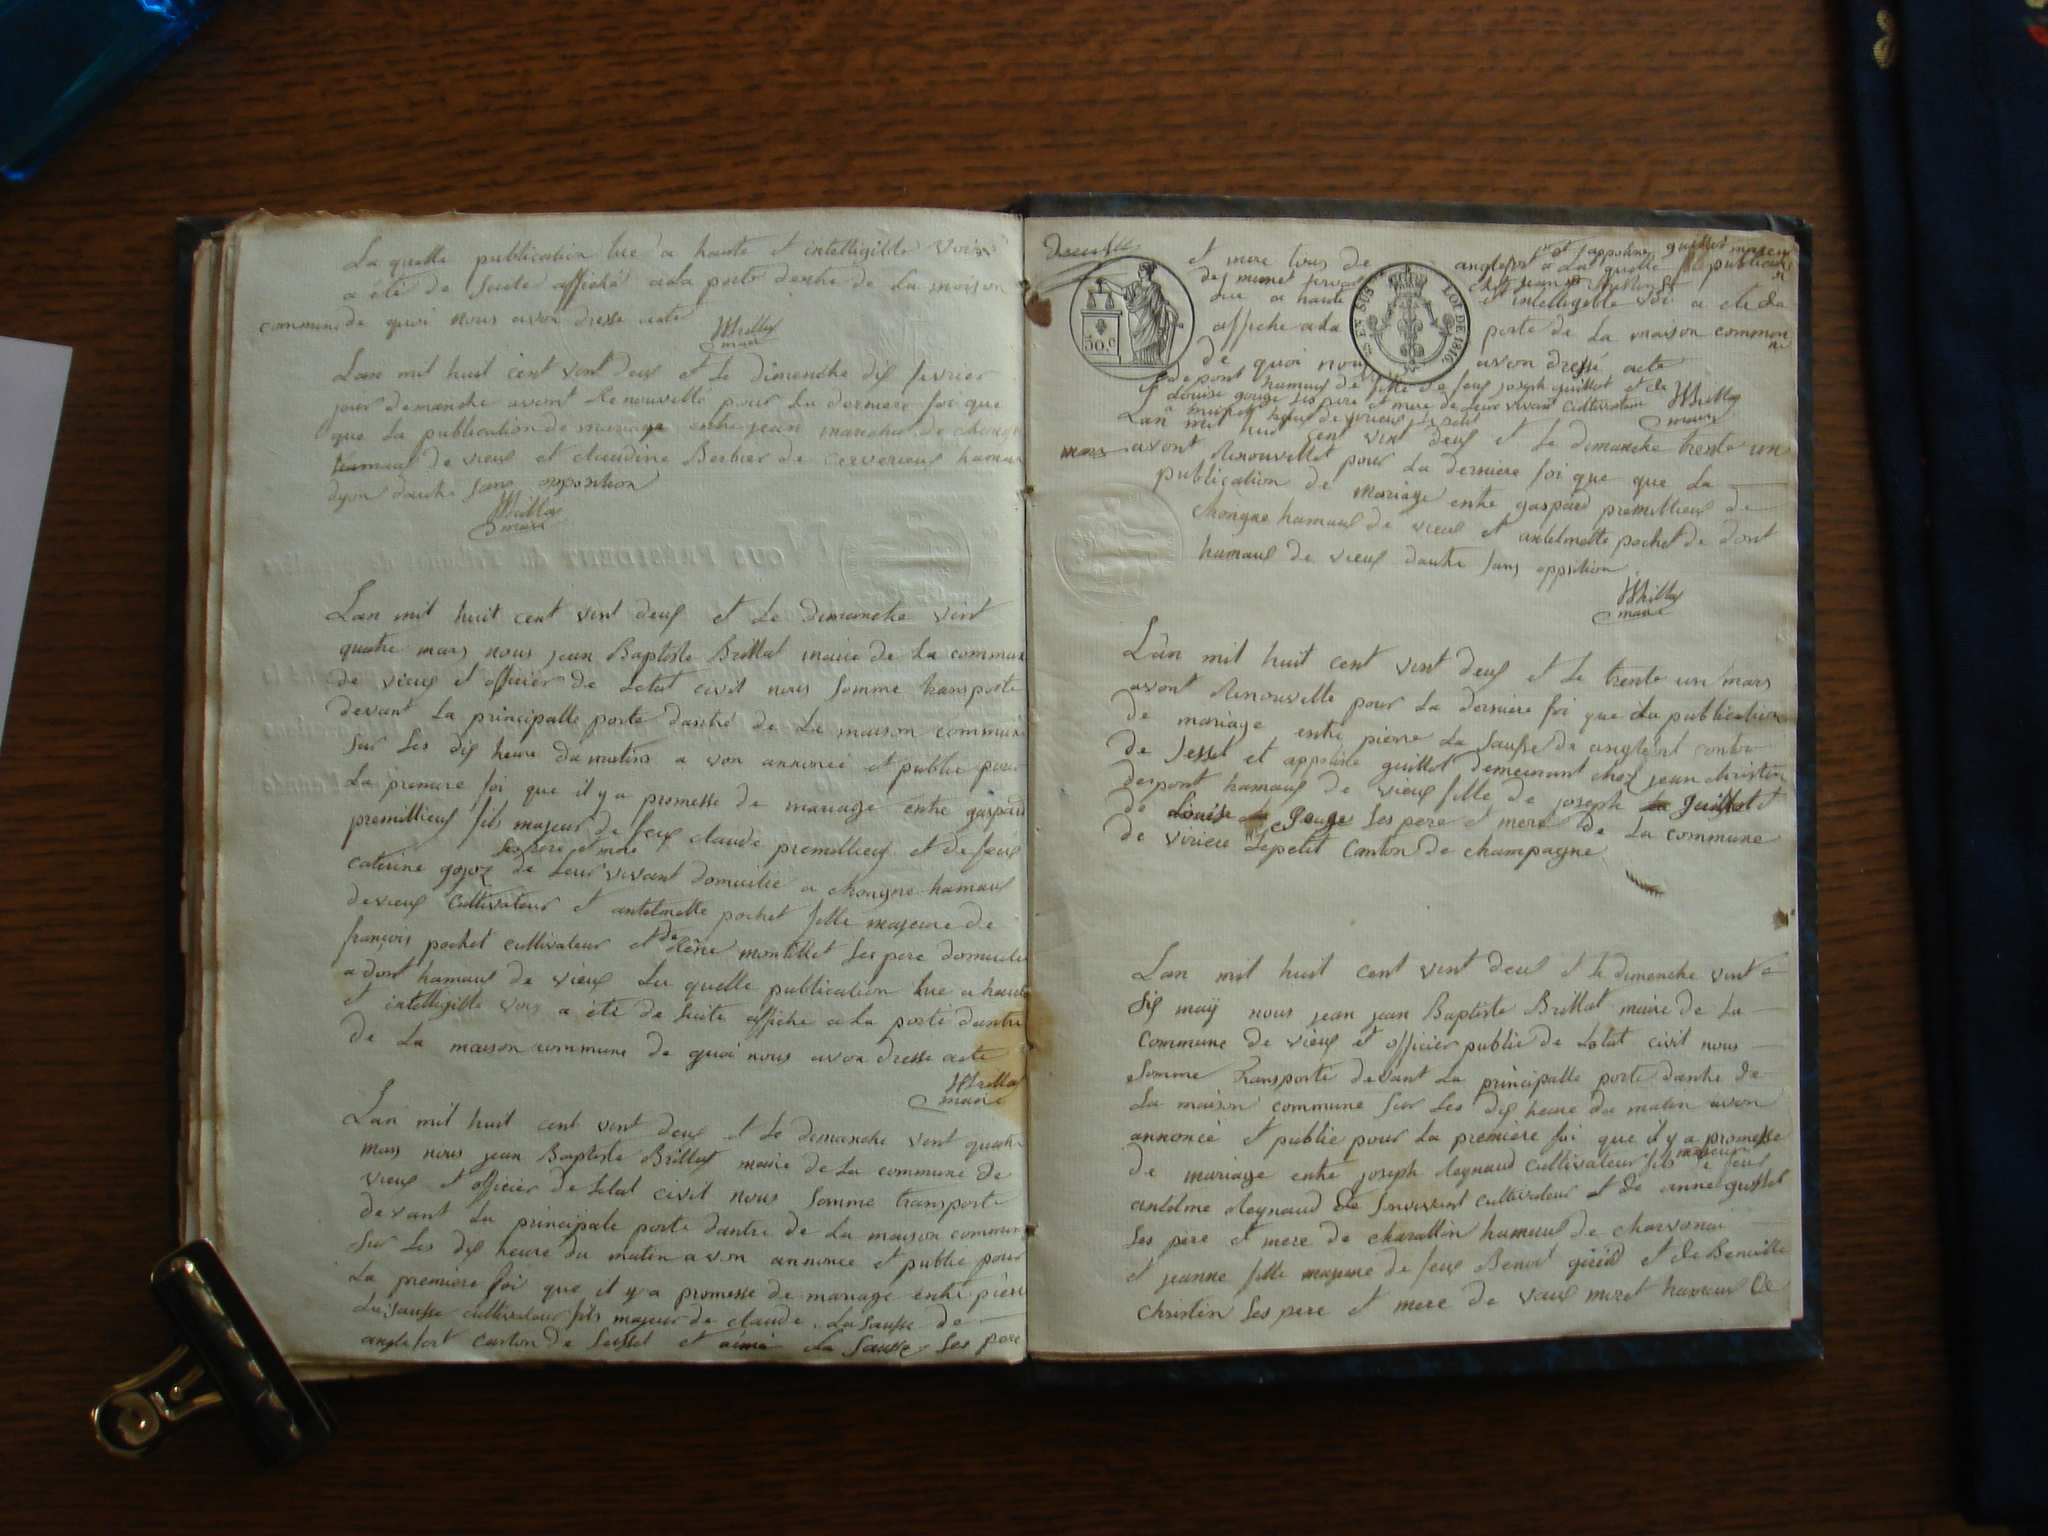 La quelle publication lue a haute et intelligible voix
a été de suite affiché a la porte dantre de La maison
commune de quoi nous avon dresse acte
Brillat
maire
Lan mil huit cent vint deux et Le dimenche dix fevrier
jour demanche avont Renouvellé pour La derniere foi que
que La publication de mariage entre jean marechal de chongne
hamaux de vieux et claudine Berbier de cerverieux hamau
dyon dautre sans opposition
Brillat
maire
Lan mil huit cent vint deux et Le dimanche vint
quatre mars nous jean Baptiste Brillat maire de La commun
de vieux et officier de Letat civil nous somme transporte
devant La principalle porte dantré de La maison commun
sur Les dix heure du matin a von annoncé et publié pour
La premiere foi que il y a promesse de mariage entre gaspard
premillieux fils majeur de feux claude premillieux et de feux
ses pere et mere
caterine gojoz de Leur vivant domicilié a chongne hamaux
de vieux cultivateur et antelmette pochet fille majeure de
françois pochet cultivateur et de Réne montillet ses pere domicilie
a dont hamaux de vieux La quelle publication lue a haute
et intelligible voix a été de suite affiché a La porte dantre
de La maison commune de quoi nous avon dresse acte
Brillat
maire
Lan mil huit cent vint deux et Le dimanche vint quatre
mars nous jean Baptiste Brillat maire de La commune de
vieux et officier de Letat civil nous somme transporte
devant La principale porte dantre de La maison commun
sur Les dix heure du matin a von annoncé et publié pour
La premiere foi que il y a promesse de mariage entre piere
La sausse cultivateur fils majeur de claude La sausse de
anglefort canton de seissel et aimé La sausse ses pere
et mere tous de anglefort et appoline guillot majeur
chez jean
a La quelle publication
lue a haute et intelligible voi a été de
affiche a la porte de La maison commun
30.C
EN SUS
LOI DE 1816.
de quoi nous avon dressé acte
depont hamaux de fille de feux joseph guillot et de
Louise gouge ses pere et mere de Leur vivant cultivateur
Brillat
maire
Lan mil huit cent vint deux et Le dimanche trente un
mars avont Renouvellet pour La derniere foi que que La
publication de mariage entre gaspard premillieux de
chongne hamaux de vieux et antelmette pochet de dont
hamaux de vieux dautre sans oppsition
Brillat
maire
Lan mil huit cent vint deux et Le trente un mars
avont Renouvellé pour La derniere foi que La publication
de mariage entre piere La sausse de anglefort canton
de sessel et appoline guillot demeurant chez jean christin
depont hamaux de vieux fille de joseph guillot et
de Louise gouge ses pere et mere de La commune
de virieu Lepetit canton de champagne
Lan mil huit cent vint deux et le dimanche vint
six maÿ nous jean jean Baptiste Brillat maire de La
commune de vieux et officier public de Letat civil nous
somme transporté devant La principalle porte dantre de
La maison commune sur Les dix heure du matin avon
annoncé et publié pour La premiere foi que il y a promesse
de mariage entre joseph Reynaud cultivateur fils majeur de feux
antelme Reynaud de survivant cultivateur et de anne gussel
ses pere et mere de charaillin hameux de charvonai
et jeanne fille majeure de feux Benoi giria et de Benoitte
christin ses pere et mere de vaux moret hameux de